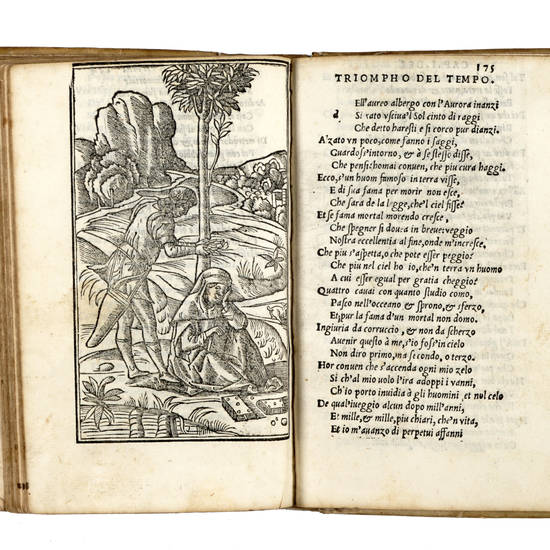 o G
175
TRIOMPHO DEL TEMPO.
d
Ell'aureo albergo con l'Aurora inanzi
Si rato vsciua'l Sol cinto di raggi
Che detto haresti e si corco pur dianzi.
Alzato vn poco, come fanno i saggi,
Guardossi'ntorno, & à se stesso disse,
Che pensi? homai conuen, che piu cura haggi.
Ecco, s'un huom famoso in terra visse,
E di sua fama per morir non esce,
Che sara de la legge, che'l ciel fisse?
Et se fama mortal morendo cresce,
Che spegner si doueua in breue: veggio
Nostra eccellentia al fine, onde m'incresce,
Che piu s'aspetta, o che pote esser peggio?
Che piu nel ciel ho io, che'n terra vn huomo
A cui esser egual per gratia cheggio?
Quattro cauai con quanto studio como,
Pasco nell'oceano & sprono, & sferzo,
Et pur la fama d'un mortal non domo.
Ingiuria da corruccio, & non da scherzo
Auenir questo à me, s'io foss'in cielo
Non diro primo, ma secondo, o terzo.
Hor conuen che s'accenda ogni mio zelo
Si ch'al mio uolo l'ira adoppi i vanni,
Ch'io porto inuidia à gli huomini, et nol celo
De qual'iueggio alcun dopo mill'anni,
Et mille, & mille, piu chiari, che'n vita,
Et io m'auanzo di perpetui affanni